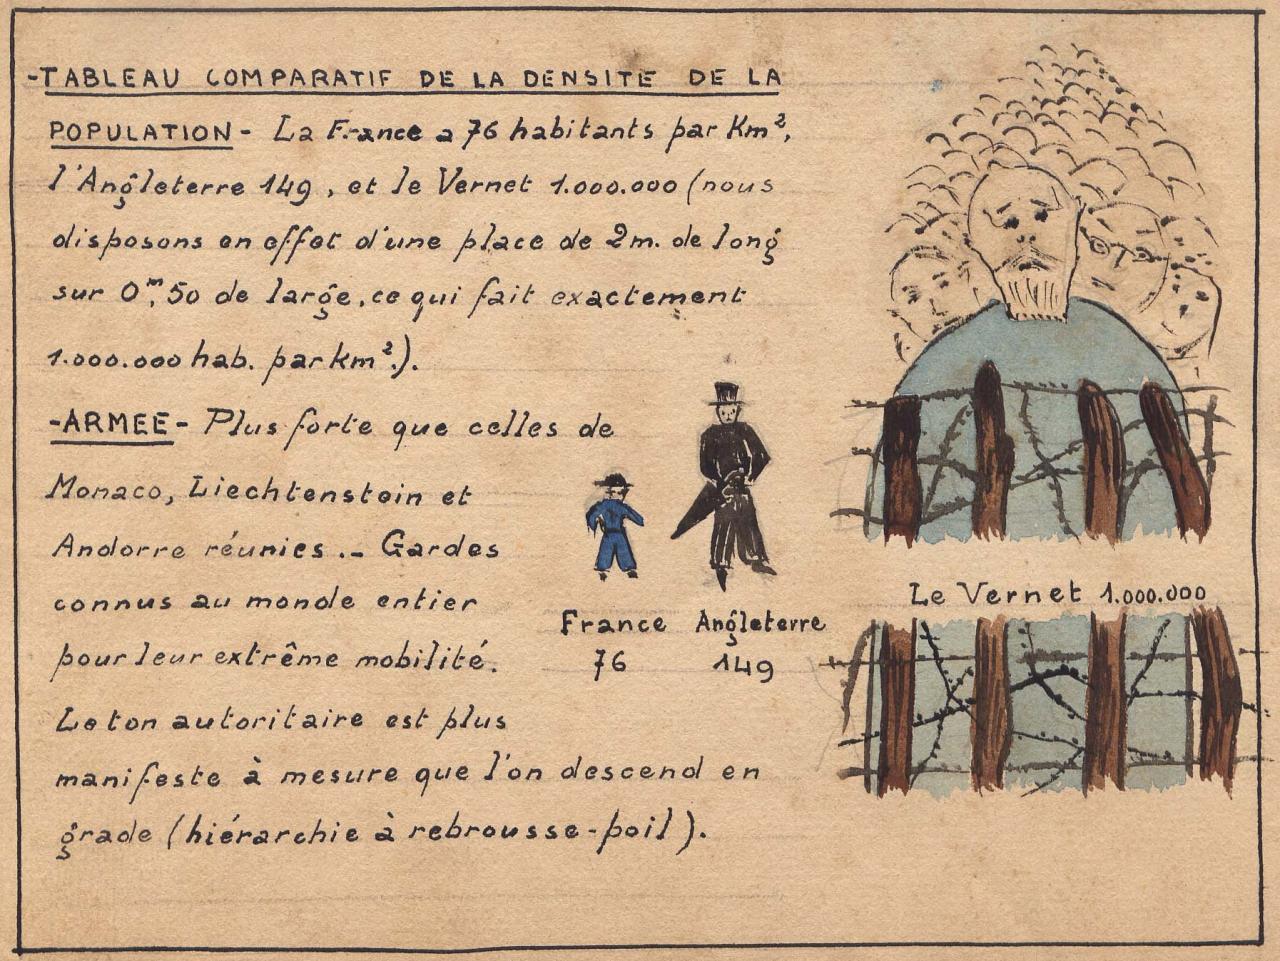 -TABLEAU COMPARATIF DE LA DENSITE DE LA
POPULATION- La France a 76 habitants par Km²,
l'Angleterre 149, et le Vernet 1.000.000 (nous
disposons en effet d'une place de 2m. de long
sur 0ᵐ,50 de large, ce qui fait exactement
1.000.000 hab. par km².).
-ARMEE- Plus forte que celles de
Monaco, Liechtenstein et
Andorre réunies.- Gardes
connus au monde entier
pour leur extrême mobilité.
Le ton autoritaire est plus
manifeste à mesure que l'on descend en
grade (hiérarchie à rebrousse-poil).
France
76
Angleterre
149
Le Vernet 1.000.000